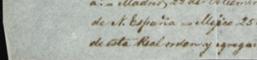 Madrid, 22 de
de N. España = Megico 25
de esta Real orden y agregar